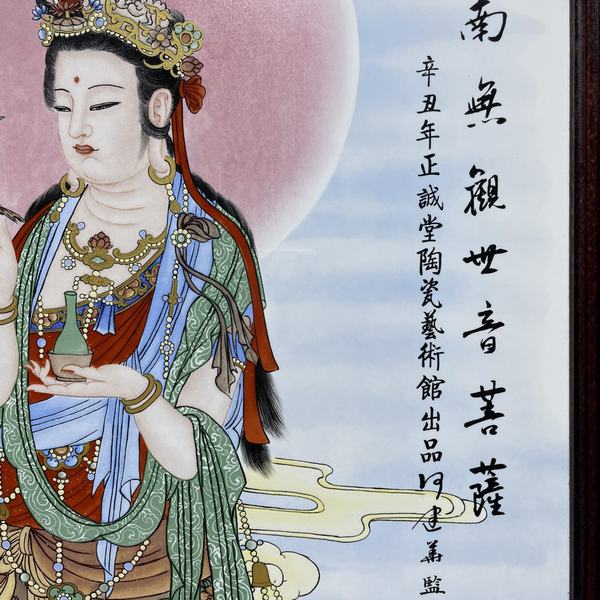 南無觀世音菩薩
辛丑年正誠堂陶瓷藝術館出品何建萬監